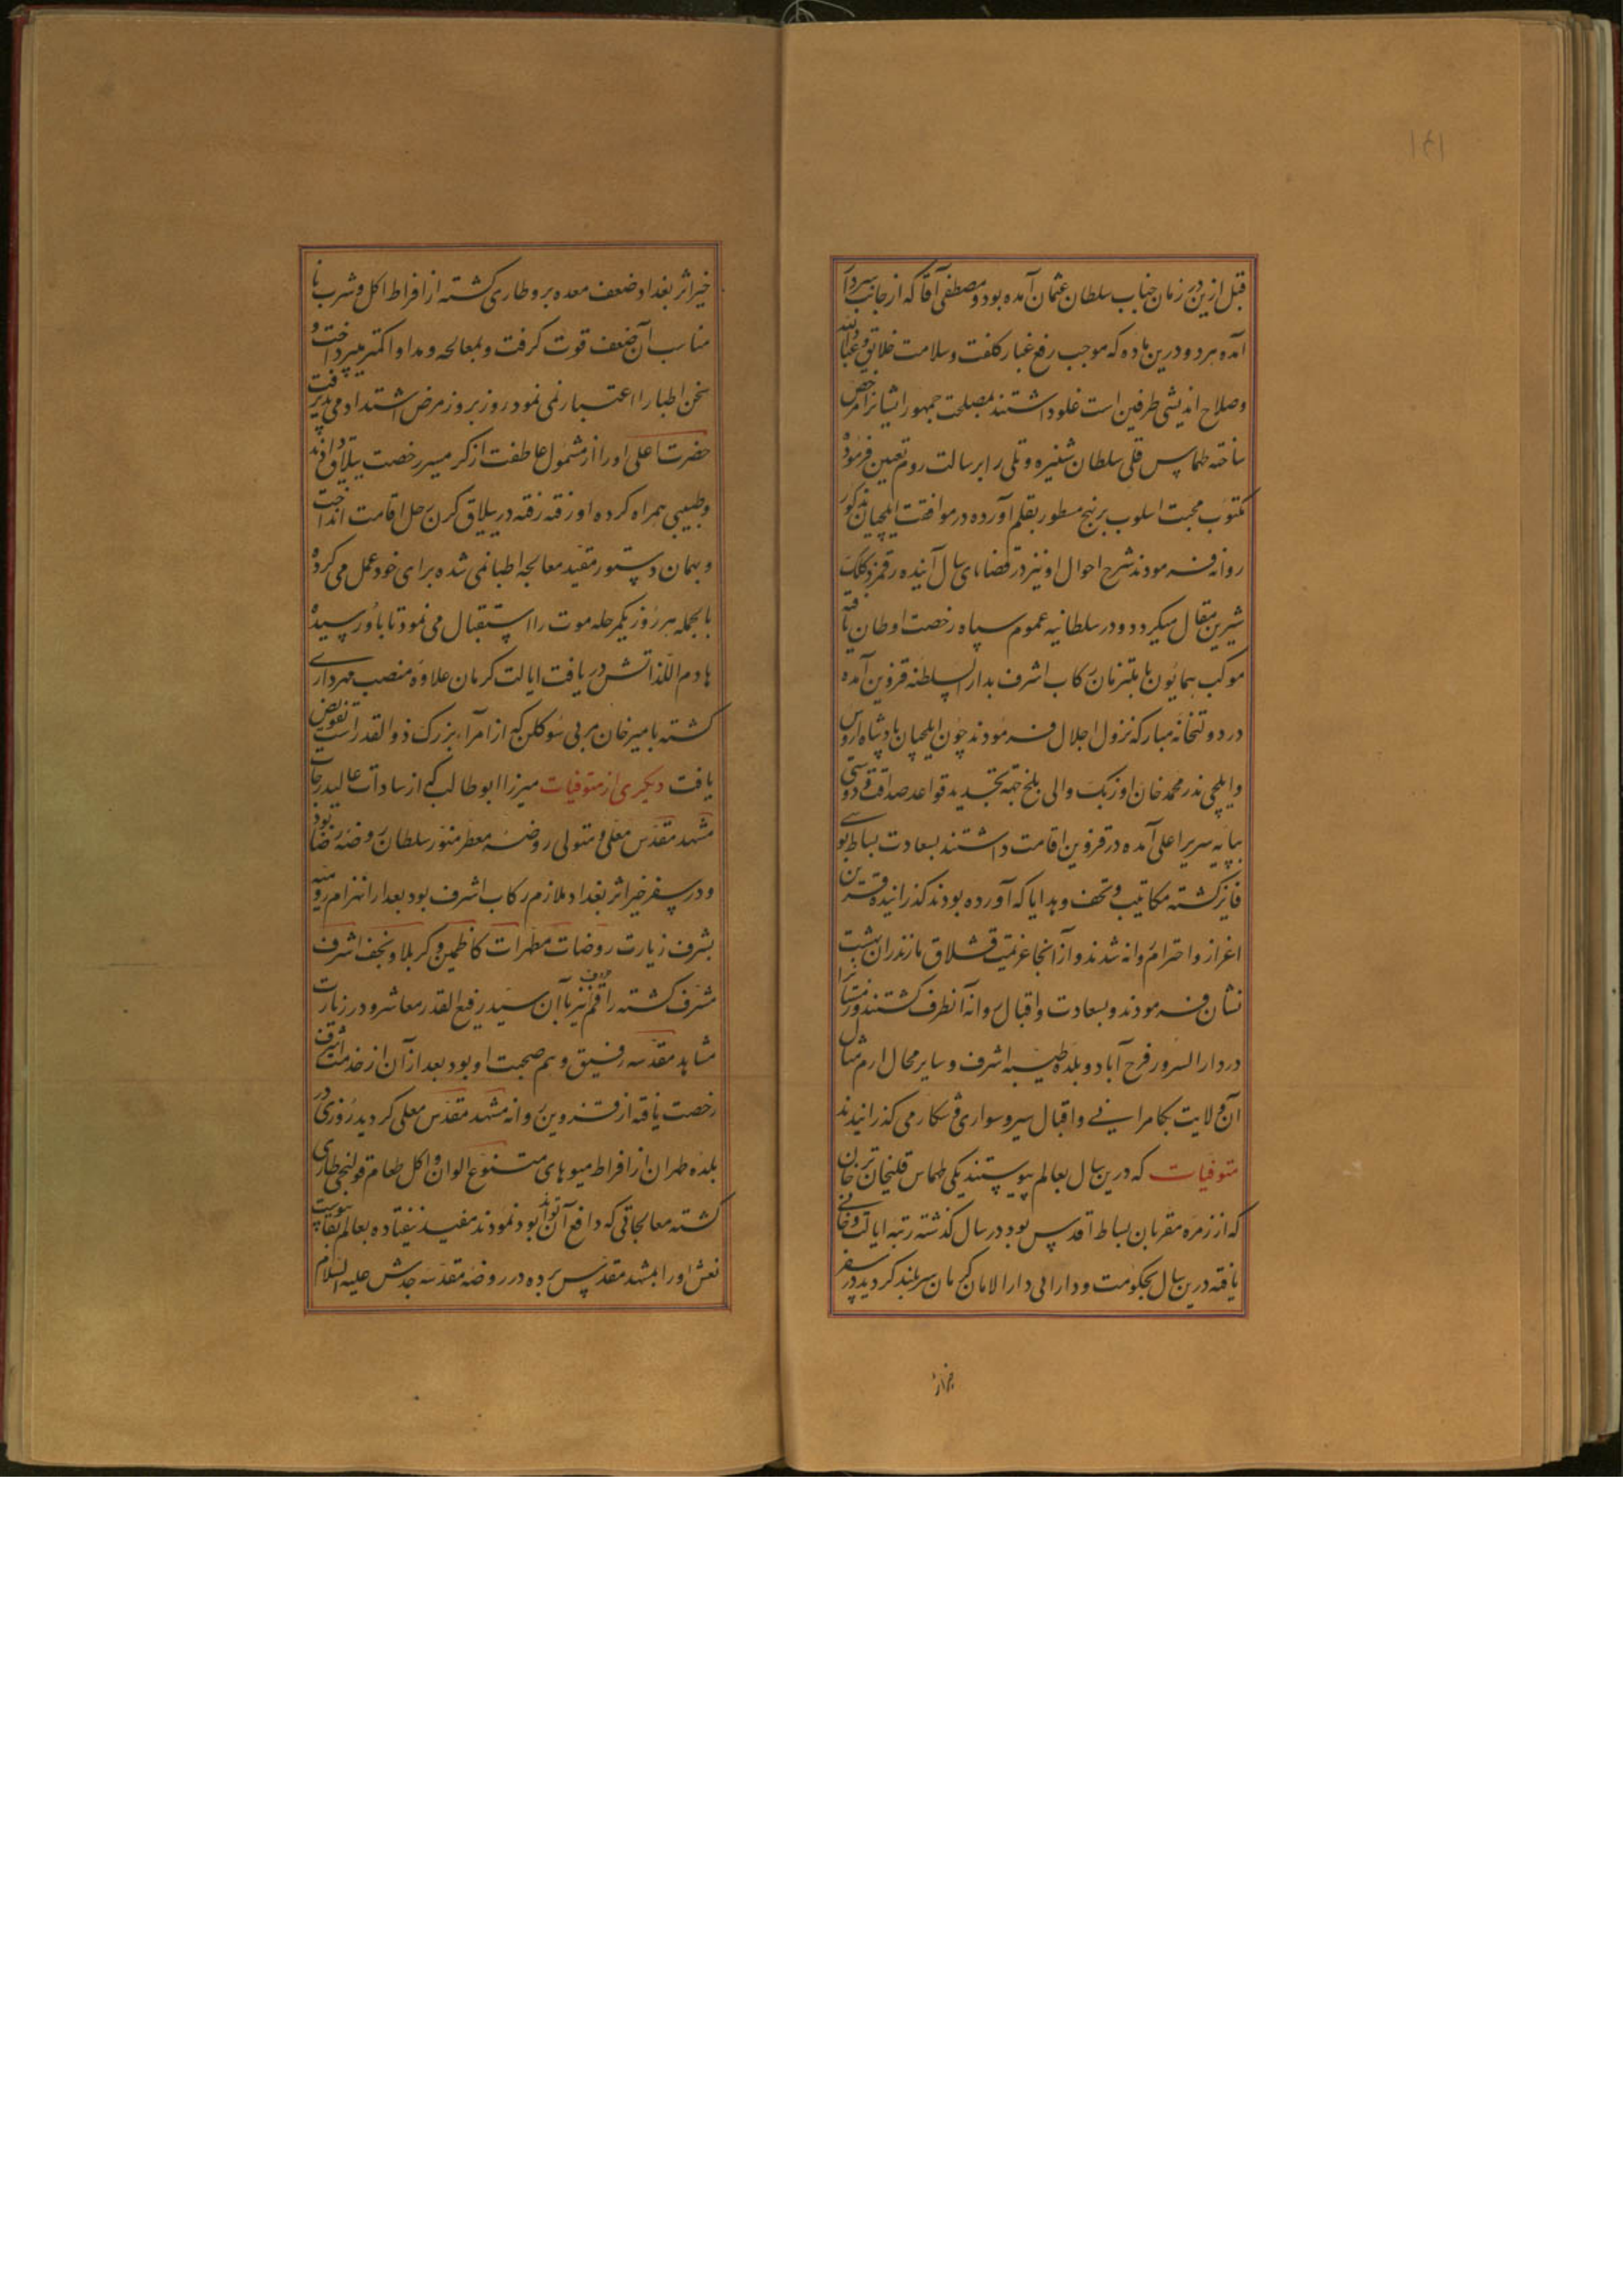 ۱۴۱
قبل ازین در زمان جناب سلطان عثمان آمده بود و مصطفی آقا که از جانب سردار
آمده هر دو درین ماده که موجب رفع غبار کلفت و سلامت خلایق و عبادالله
و صلاح اندیشی طرفین است غلو داشتند بمصلحت جمهور ایشانرا مرخص
ساخته طهماسب قلی سلطان را برسالت روم تعیین فرموده
مکتوب محبت اسلوب بر نهج مسطور بقلم آورده در موافقت ایلچیان مذکور
روانه فرمودند شرح احوال او نیز در قضایای سال آینده رقمزد کلک
شیرین مقال میگردد و در سلطانیه عموم سپاه رخصت اوطان یافته
موکب همایون با ملتزمان رکاب اشرف بدارالسلطنه قزوین آمده
در دولتخانه مبارکه نزول اجلال فرمودند چون ایلچیان پادشاه اروس
و ایلچی ندر محمد خان اوزبک والی بلخ جهة تجدید قواعد صداقت و دوستی
بپایه سریر اعلی آمده در قزوین اقامت داشتند بسعادت بساط بوسی
فایز گشته مکاتیب و تحف و هدایا که آورده بودند گذرانیده قرین
اعزاز و احترام روانه شدند و از آنجا عزیمت قشلاق مازندران بهشت
نشان فرمودند و بسعادت و اقبال روانه آنطرف گشتند و زمستانرا
در دارالسرور فرح آباد و بلده طیبه اشرف و سایر محال ارم مثال
آن ولایت بکامرانی و اقبال سیر و سواری و شکار می گذرانیدند
متوفیات که درین سال بعالم پیوستند یکی طهماسب قلیخان ترخان
که از زمره مقربان بساط اقدس بود در سال گذشته رتبه ایالت و خانی
یافته درین سال بحکومت و دارایی دارالامان کرمان سربلند گردید در سفر
خیر اثر
خیر اثر بغداد ضعف معده برو طاری گشته از افراط اکل و شرب نا
مناسب آن ضعف قوت گرفت و بمعالجه و مداوا کمتر میپرداخت و
سخن اطبا را اعتبار نمی نمود روز بروز مرض اشتداد می پذیرفت
حضرت اعلی او را از شمول عاطفت از گرمسیر رخصت ییلاق دادند
و طبیبی همراه کرده او رفته رفته در ییلاق کرن رحل اقامت انداخت
و بهمان دستور مقید معالجه اطبا نمی شده برای خود عمل می کرد
بالجمله هر روز یکمرحله موت را استقبال می نمود تا باو رسید
هادم اللذاتش دریافت ایالت کرمان علاوه منصب مهرداری
گشته بامیرخان مربی سوکلن که از امراء بزرگ ذوالقدر است تفویض
یافت دیگری از متوفیات میرزا ابوطالب که از سادات عالیدرجات
مشهد مقدس معلی و متولی روضه معطر منور سلطان روضه رضا بود
و در سفر خیر اثر بغداد ملازم رکاب اشرف بود بعد از انهزام رومیه
بشرف زیارت روضات مطهرات کاظمین و کربلا و نجف اشرف
مشرف گشته راقم حروف نیز با آن سید رفیع القدر معاشر و در زیارت
مشاهد مقدسه رفیق و هم صحبت او بود بعد از آن از خدمت اشرف
رخصت یافته از قزوین روانه مشهد مقدس معلی گردید روزی در
بلده طهران از افراط میوهای متنوع الوان و اکل طعام قولنجی طاری
گشته معالجاتی که دافع آن تواند بود نمودند مفید نیفتاده بعالم بقا پیوست
نعش او را بمشهد مقدس برده در روضه مقدسه جدش علیه السلام